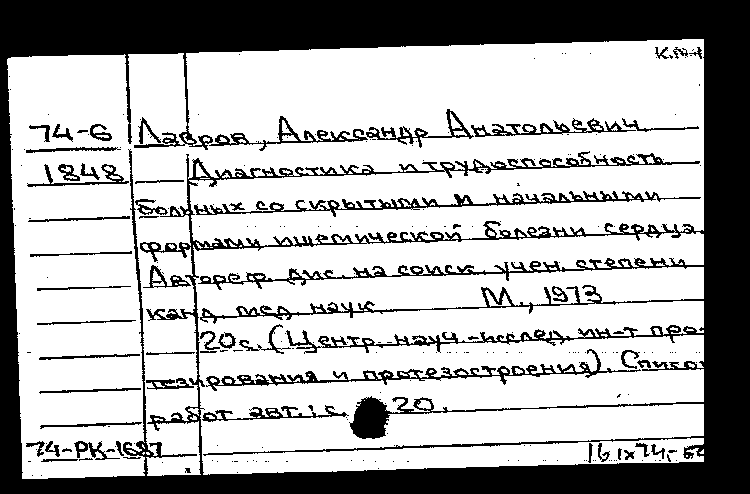 74-6 Лавров, Александр Анатольевич.
1848 Диагностика и трудоспособность
больных со скрытыми и начальными
формами ишемической болезни сердца.
Автореф. дис. на соиск. учен. степени
канд. мед. наук М., 1973
20с. (Центр. науч.-исслед. ин-т про-
тезирования и протезостроения). Список
работ авт.: с. 20.
74-РК-1687